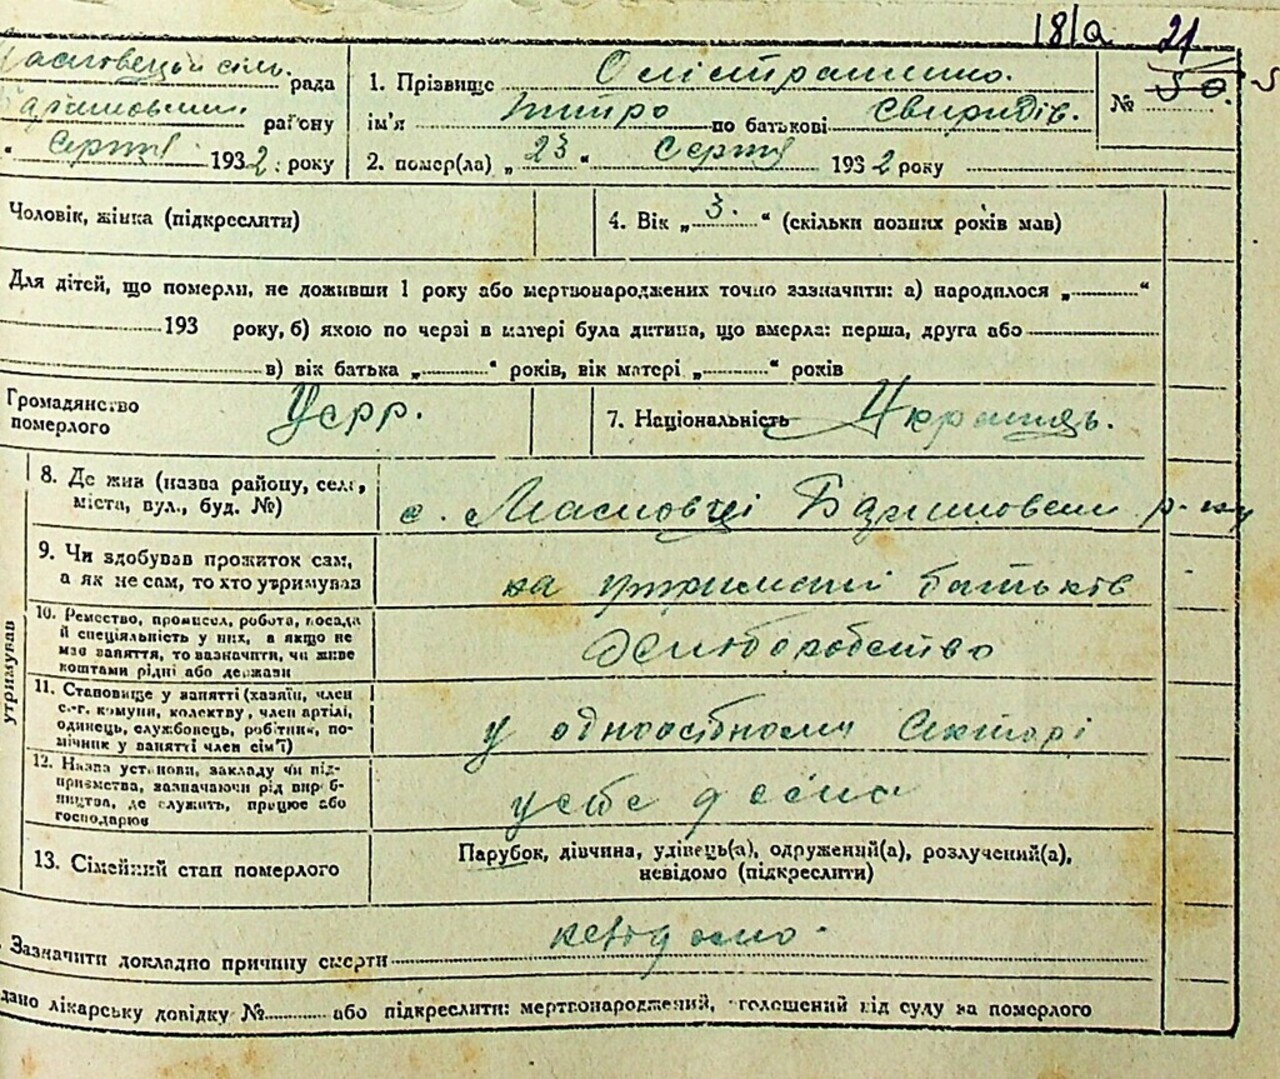 18/а 21
Масловецька сіль. рада
1. Прізвище Оністратенко.
№ 50.
району
ім'я Митро по батькові Свиридів.
" Серпня 1932. року
2. помер(ла) „ 23 " Серпня 1932 року
Чоловік, жінка (підкреслити)
4. Вік „ 3. " (скільки повних років мав)
Для дітей, що померли, не доживши 1 року або мертвонароджених точно зазначити: а) народилося „ "
193 року, б) якою по черзі в матері була дитина, що вмерла: перша, друга або
в) вік батька „ " років, вік матері „ " років
Громадянство померлого Усрр.
7. Національність Українець.
8. Де жив (назва району, села,
міста, вул., буд. №)
с. Масловці р-ну
9. Чи здобував прожиток сам,
а як не сам, то хто утримував
на утриманні батьків
утримував
10. Ремество, промисел, робота, посада
й спеціяльність у них, а якщо не
має заняття, то вазначити, чи живе
коштами рідні або держави
Хліборобство
11. Становище у занятті (хазяїн, член
с.-г. комуни, колективу, член артілі,
одинець, службовець, робітник, по-
мічник у занятті член сім'ї)
у одноосібному секторі
12. Назва установи, закладу чи під-
приємства, зазначаючи рід вироб-
ництва, де служить, працює або
господарює
у себе дома
13. Сімейний стан померлого
Парубок, дівчина, удівець(а), одружений(а), розлучений(а),
невідомо (підкреслити)
Зазначити докладно причину смерти невідомо.
дано лікарську довідку № або підкреслити: мертвонароджений, оголошений від суду за померлого